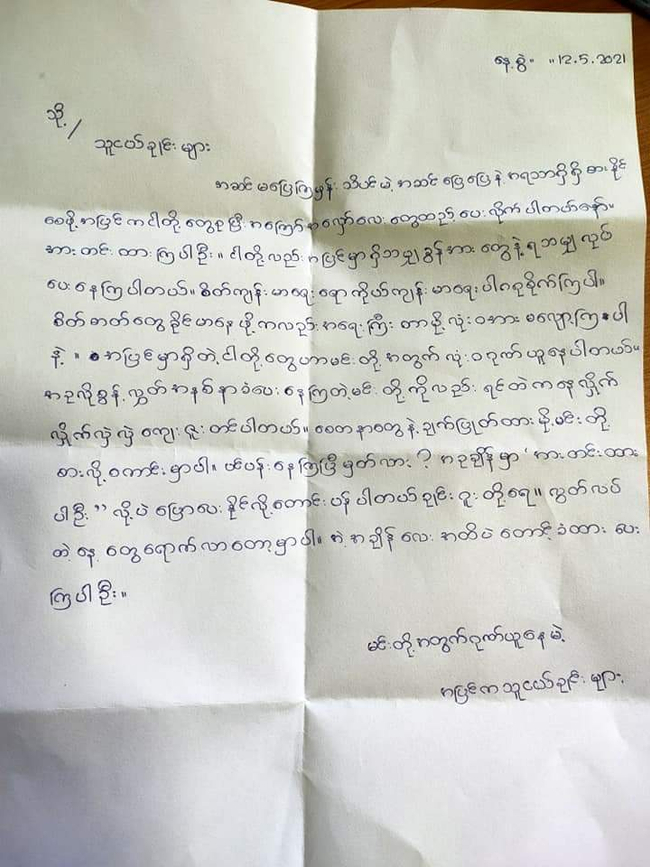 နေ့စွဲ။ ။12.5.2021
သို့/
သူငယ်ချင်းများ
အဆင်မပြေကြမှန်းသိပင်မဲ့ အဆင်ပြေပြေနဲ့ အရသာရှိရှိစားနိုင်
စေဖို့ အပြင်ကငါတို့တွေစုပြီး အကြော်အလှော်လေးတွေထည့်ပေးလိုက်ပါတယ်နော်။
အားတင်းထားကြပါဦး။ ငါတို့လည်း အပြင်မှာရှိသမျှခွန်အားတွေနဲ့ ရသမျှလုပ်
ပေးနေကြပါတယ်။ စိတ်ကျန်းမာရေးရောကိုယ်ကျန်းမာရေးပါဂရုစိုက်ကြပါ။
စိတ်ဓာတ်တွေခိုင်မာနေဖို့ကလည်းအရေးကြီးတာမို့လုံးဝအားမလျော့ကြပါ
နဲ့။ အပြင်မှာရှိတဲ့ငါတို့တွေဟာမင်းတို့အတွက်လုံးဝဂုဏ်ယူနေပါတယ်။
အခုလိုစွန့်လွှတ်အနစ်နာခံပေးနေကြတဲ့မင်းတို့ကိုလည်းရင်ထဲကနေလှိုက်
လှိုက်လှဲလှဲကျေးဇူးတင်ပါတယ်။ စေတနာတွေနဲ့ချက်ပြုတ်ထားမို့မင်းတို့
စားလို့ကောင်းမှာပါ။ ပင်ပန်းနေကြပြီမှတ်လား? အခုချိန်မှာ "အားတင်းထား
ပါဦး" လို့ပဲပြောပေးနိုင်လို့တောင်းပန်ပါတယ်ချင်းငူးတို့ရေ။ လွတ်လပ်
တဲ့နေ့တွေရောက်လာတော့မှာပါ။ အဲ့အချိန်လေးအထိပဲတောင့်ခံထားပေး
ကြပါဦး။
မင်းတို့အတွက်ဂုဏ်ယူနေမဲ့
အပြင်ကသူငယ်ချင်းများ